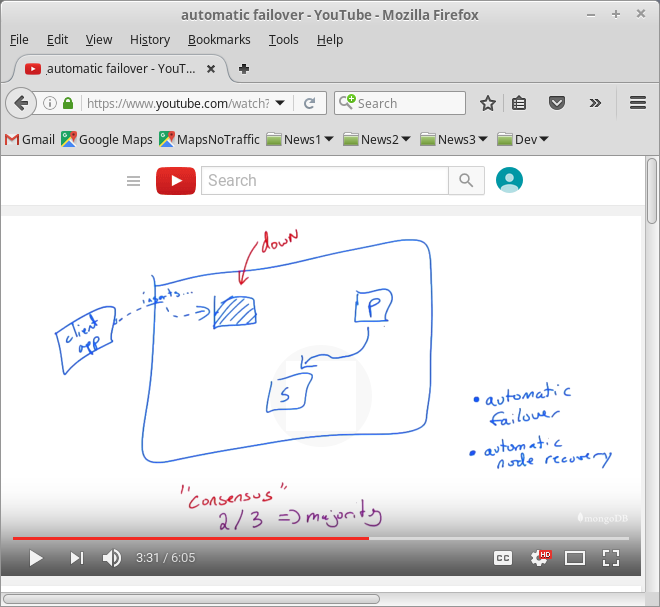 automatic failover - YouTube - Mozilla Firefox
File Edit View History Bookmarks Tools Help
automatic failover - YouT...
https://www.youtube.com/watch? Search
Gmail Google Maps MapsNoTraffic News1 News2 News3 Dev
Search
down
inserts...
client
app
P
S
• automatic
failover
• automatic
node recovery
"Consensus"
2/3 => majority
mongoDB
3:31 / 6:05 CC HD